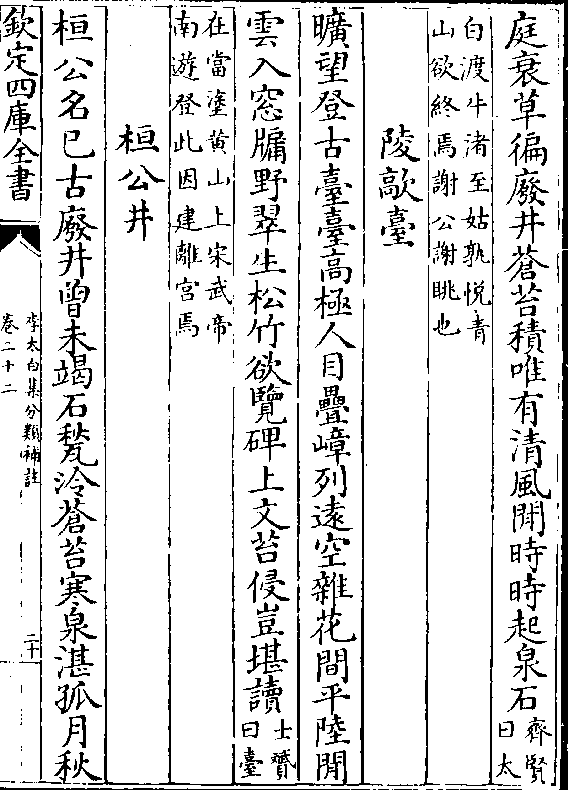 庭衰草徧廢井蒼苔積唯有清風閒時時起泉石齊賢曰太
白渡牛渚至姑孰悅青
山欲終焉謝公謝眺也
陵歊臺
曠望登古臺臺高極人目疊嶂列遠空雜花間平陸閒
雲入窓牖野翠生松竹欲覽碑上文苔侵豈堪讀士贇曰臺
在當塗黄山上宋武帝
南遊登此因建離宮焉
桓公井
桓公名已古廢井曾未竭石甃冷蒼苔寒泉湛孤月秋
欽定四庫全書
李太白集分類補註
卷二十二
二十